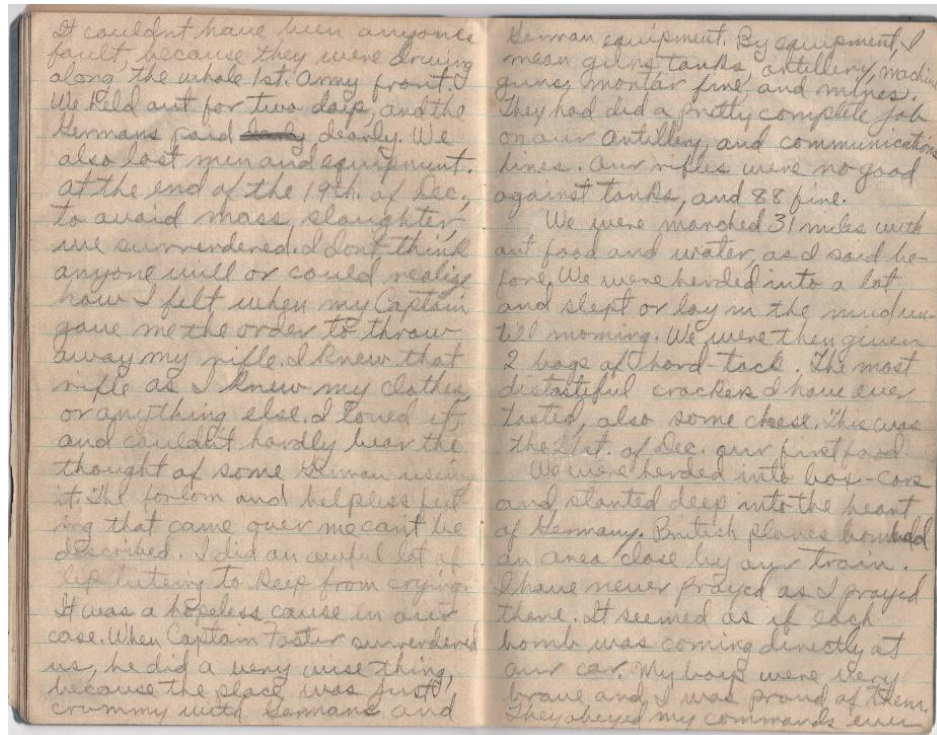 It couldn't have been anyones
fault, because they were driving
along the whole 1st. Army front.
We held out for two days, and the
Germans paid dearly. We
also lost men and equipment.
At the end of the 19th. of Dec.,
to avoid mass slaughter,
we surrendered. I don't think
anyone will or could realize
how I felt when my Captain
gave me the order to throw
away my rifle. I knew that
rifle as I knew my clothes,
or anything else. I loved it,
and couldn't hardly bear the
thought of some German using
it. The forlorn and helpless feel-
ing that came over me cant be
described. I did an awful lot of
lip biting to keep from crying.
It was a hopeless cause in our
case. When Captain Foster surrendered
us, he did a very wise thing,
because the place was just
crummy with Germans and
German equipment. By equipment, I
mean guns tanks, artillery, machine
guns, mortar fire and mines.
They had did a pretty complete job
on our artillery, and communications
lines. Our rifles were no good
against tanks, and 88 fire.
We were marched 31 miles with
out food and water, as I said be-
fore. We were herded into a lot
and slept or lay in the mud un-
till morning. We were then given
2 bags of hard-tack. The most
distasteful crackers I have ever
tasted, also some cheese. This was
the 21st. of Dec. our first food.
We were herded into box-cars
and started deep into the heart
of Germany. British planes bombed
an area close by our train.
I have never prayed as I prayed
there. It seemed as if each
bomb was coming directly at
our car. My boys were very
brave and I was proud of them.
They obeyed my commands even